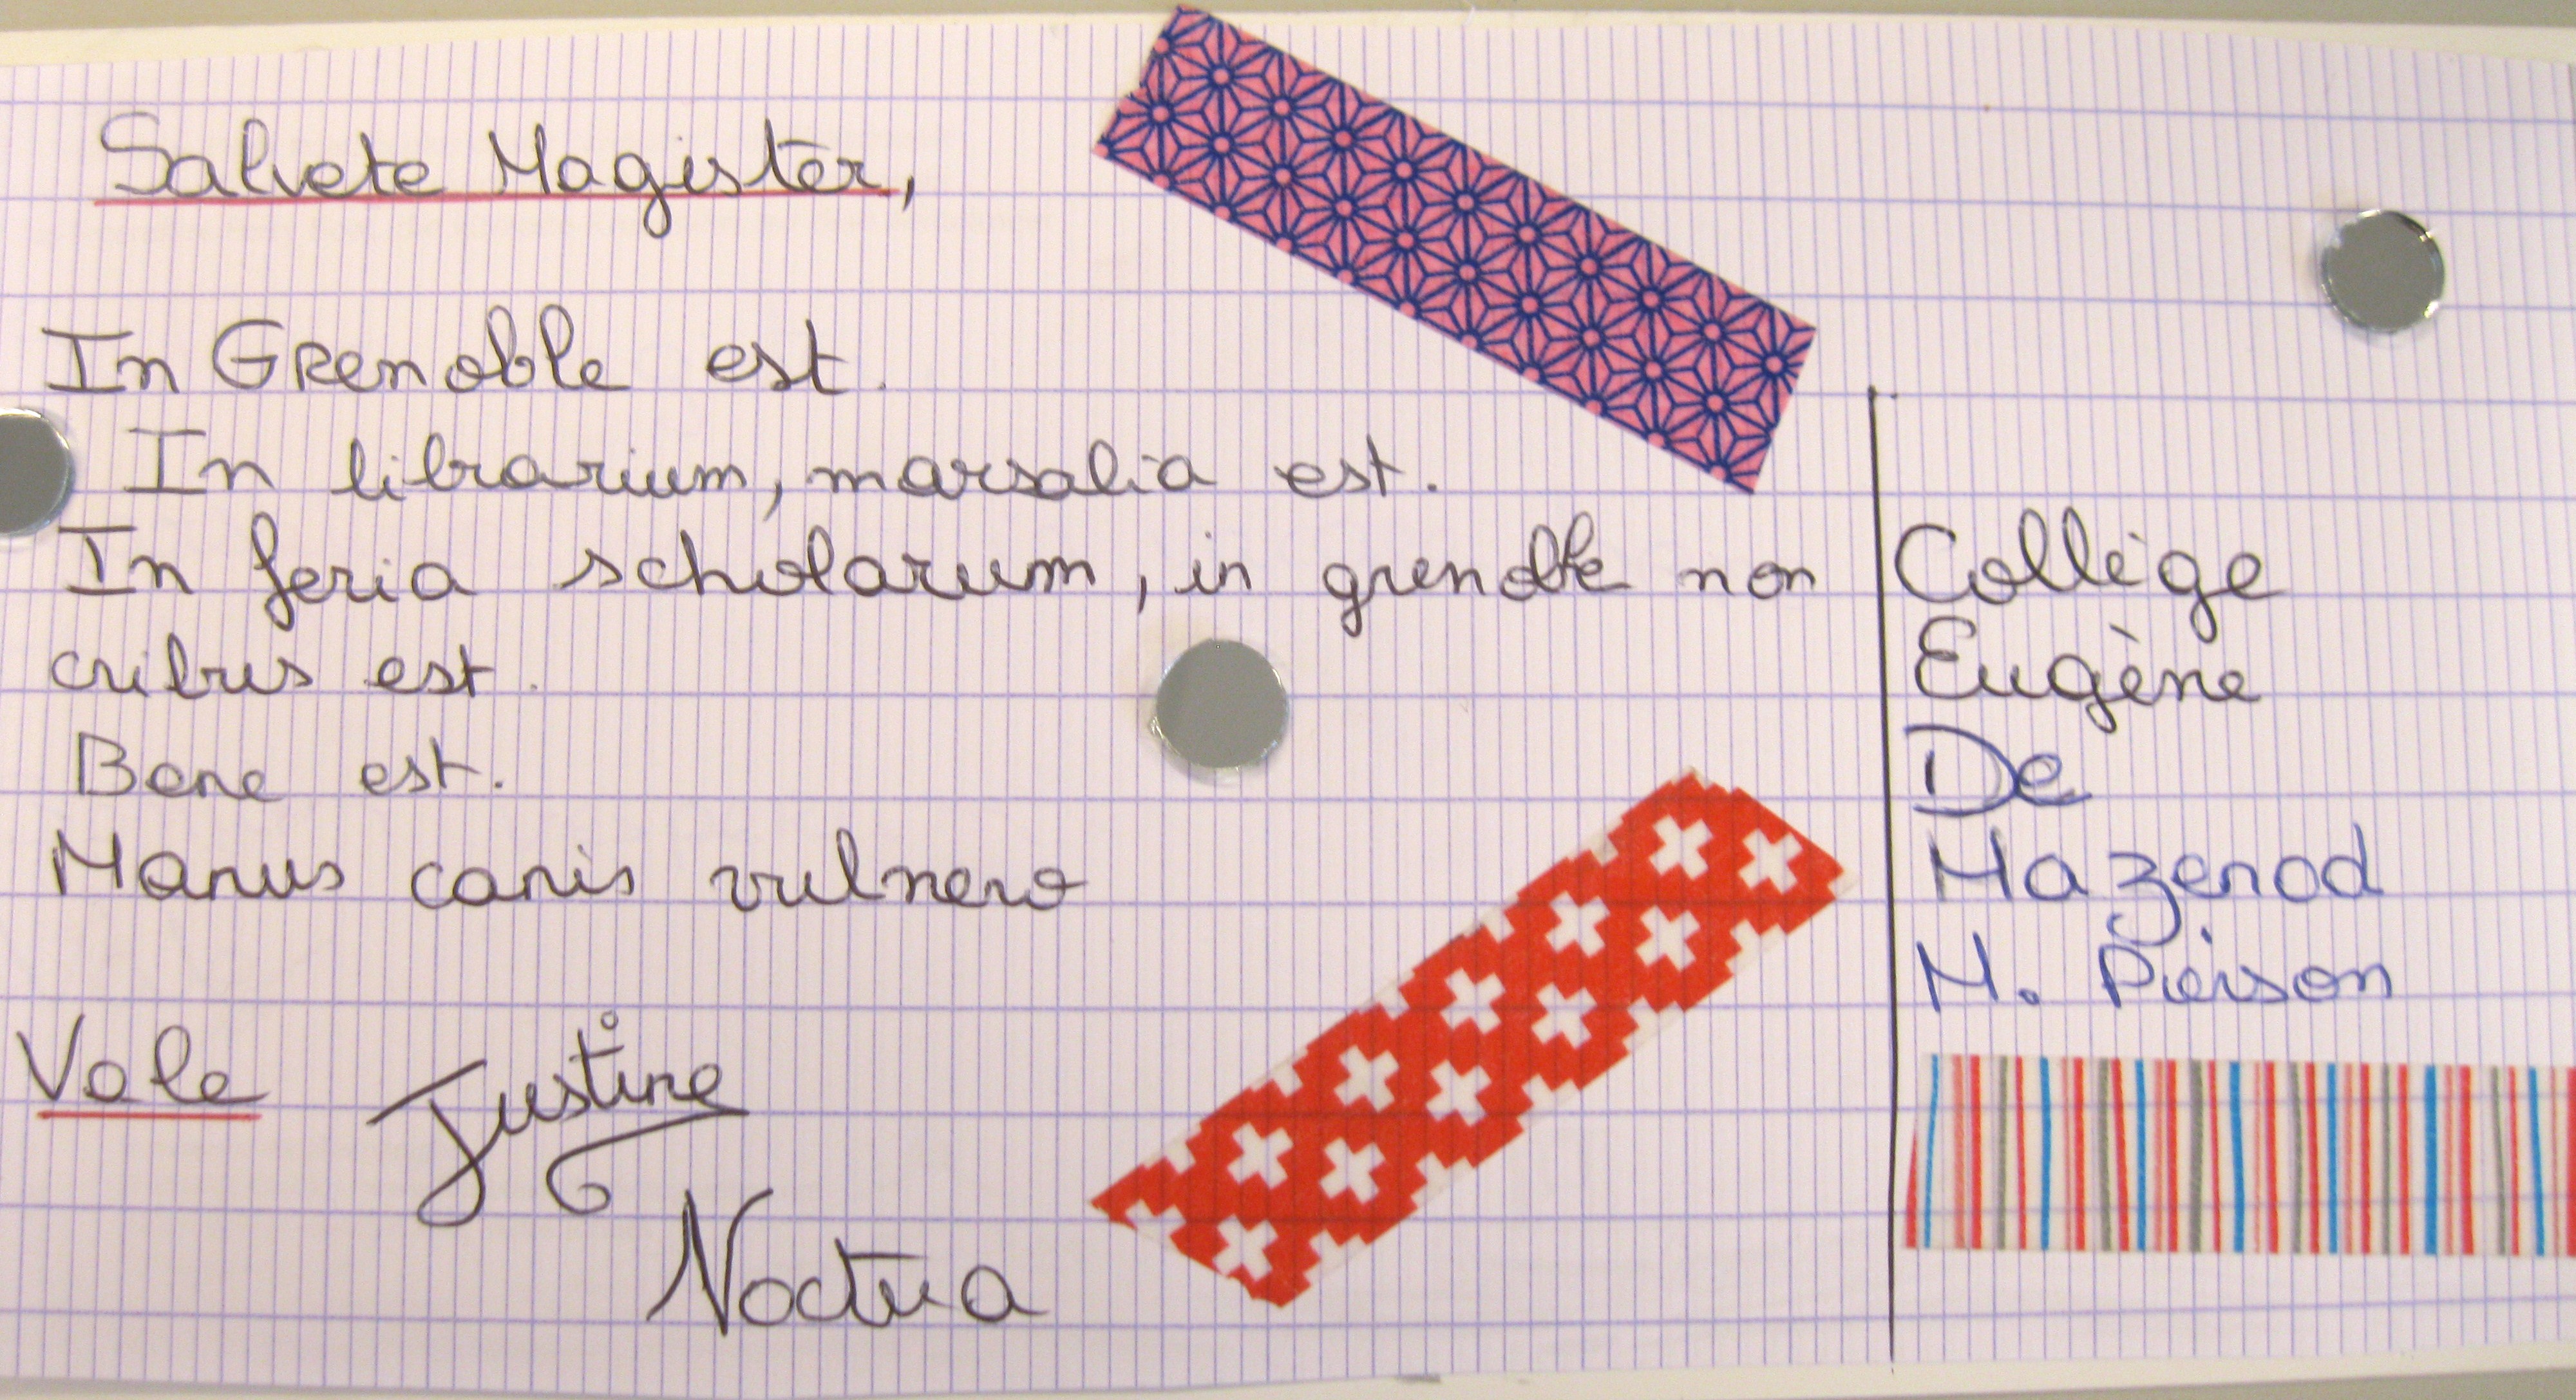 Salvete Magister,
In Grenoble est.
In librarium, marsalia est.
In feria scholarum, in grenoble non
cribris est.
Bene est.
Manus canis vulnero
Vale Justine
Noctua
Collège
Eugène
De
Mazenod
M. Pierson